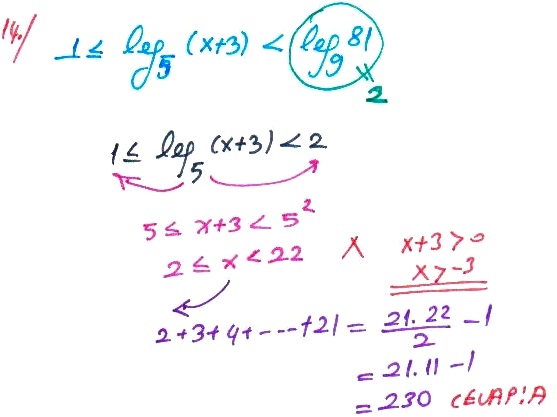 14./
1 ≤ log₅ (x+3) < log₉ 81
2
1 ≤ log₅ (x+3) < 2
5 ≤ x+3 < 5²
2 ≤ x < 22
x+3 > 0
x > -3
2+3+4+----+21 = 21.22/2 - 1
= 21.11 - 1
= 230 CEVAP:A